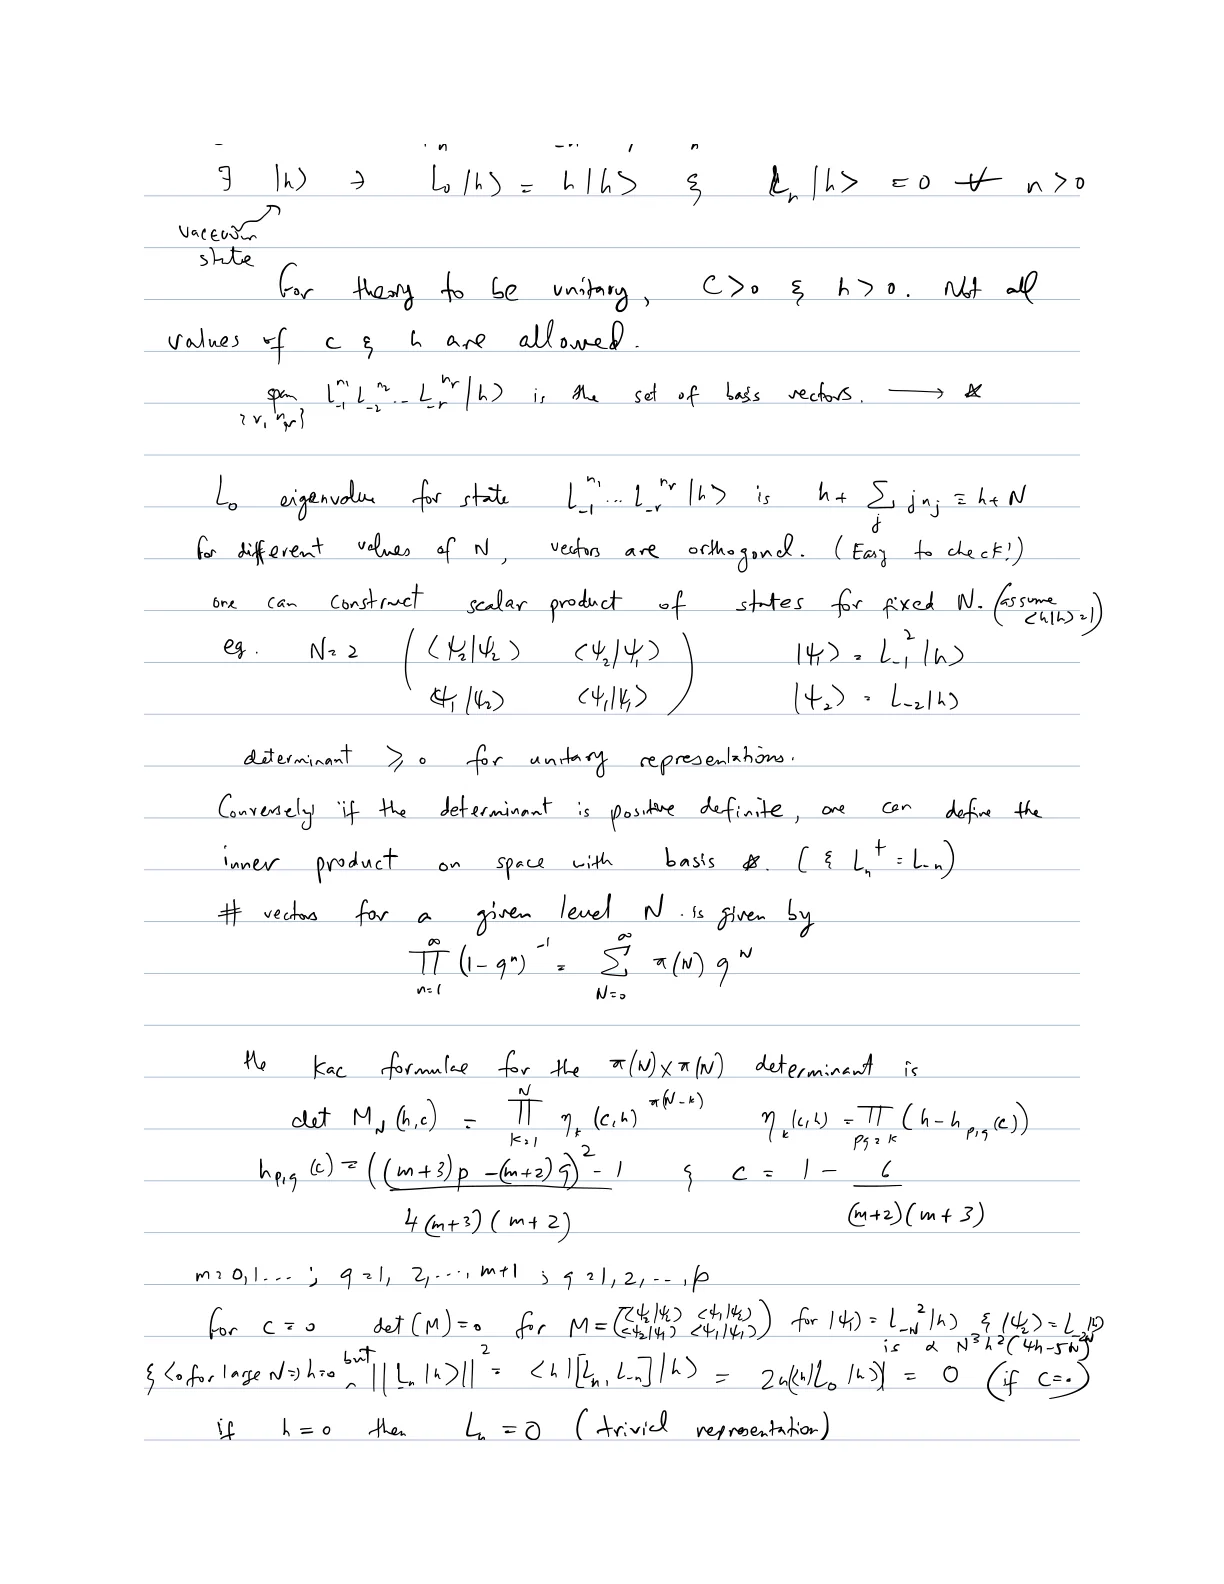 ∃ |h⟩ ∋ L₀|h⟩ = h|h⟩ & Lₙ|h⟩ = 0 ∀ n > 0
vaccuum
state
For theory to be unitary, C>0 & h>0. Not all
values of c & h are allowed.
span L₋₁ⁿ¹ L₋₂ⁿ² .. L₋ᵣⁿʳ |h⟩ is the set of basis vectors. ⟶ *
L₀ eigenvalue for state L₋₁ⁿ¹ ... L₋ᵣⁿʳ |h⟩ is h + Σⱼ j nⱼ ≡ h + N
for different values of N, vectors are orthogonal. (Easy to check!)
one can construct scalar product of states for fixed N. (assume ⟨h|h⟩=1)
eg. N=2 ( ⟨ψ₂|ψ₂⟩ ⟨ψ₂|ψ₁⟩ ) |ψ₁⟩ = L₋₁² |h⟩
⟨ψ₁|ψ₂⟩ ⟨ψ₁|ψ₁⟩ |ψ₂⟩ = L₋₂|h⟩
determinant ≥ 0 for unitary representations.
Conversely if the determinant is positive definite, one can define the
inner product on space with basis *. ( & Lₙ† = L₋ₙ)
# vectors for a given level N is given by
∏_{n=1}^{∞} (1-qⁿ)⁻¹ = Σ_{N=0}^{∞} π(N) q^N
the Kac formulae for the π(N)×π(N) determinant is
det M_N (h,c) = ∏_{k=1}^{N} η_k (c,h)^{π(N-k)} η_k(c,h) = ∏_{pq=k} (h - h_{p,q}(c))
h_{p,q}(c) = ((m+3)p - (m+2)q)² - 1 / 4(m+3)(m+2) & c = 1 - 6 / (m+2)(m+3)
m=0,1.... ; q=1, 2,..., m+1 ; q=1,2,..,p
for c=0 det(M)=0 for M = (⟨ψ₂|ψ₂⟩ ⟨ψ₁|ψ₂⟩ ⟨ψ₂|ψ₁⟩ ⟨ψ₁|ψ₁⟩) for |ψ₁⟩ = L₋N² |h⟩ & |ψ₂⟩ = L₋₂N|h⟩
is α N³h²(4h-5N)
& <0 for large N ⇒ h=0 but ||L₋ₙ|h⟩||² = ⟨h|[Lₙ, L₋ₙ]|h⟩ = 2n⟨h|L₀|h⟩ = 0 (if c=0)
if h = 0 then Lₙ = 0 (trivial representation)